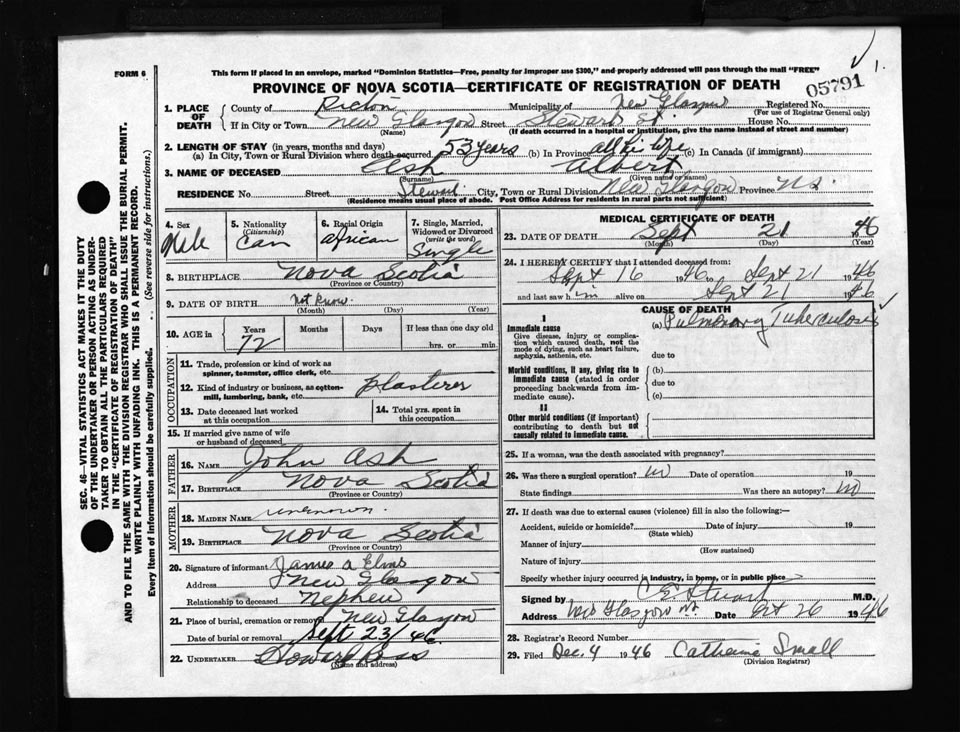 FORM 6
This form if placed in an envelope, marked "Dominion Statistics—Free, penalty for improper use $300," and properly addressed will pass through the mail "FREE"
1.
05791
PROVINCE OF NOVA SCOTIA—CERTIFICATE OF REGISTRATION OF DEATH
SEC. 46—VITAL STATISTICS ACT MAKES IT THE DUTY
OF THE UNDERTAKER OR PERSON ACTING AS UNDER-
TAKER TO OBTAIN ALL THE PARTICULARS REQUIRED
IN THE "CERTIFICATE OF REGISTRATION OF DEATH"
AND TO FILE THE SAME WITH THE DIVISION REGISTRAR WHO SHALL ISSUE THE BURIAL PERMIT.
WRITE PLAINLY WITH UNFADING INK. THIS IS A PERMANENT RECORD.
Every item of information should be carefully supplied. (See reverse side for instructions.)
1. PLACE OF DEATH County of Pictou Municipality of New Glasgow Registered No.
(For use of Registrar General only)
If in City or Town New Glasgow Street Stewart St. House No.
(Name) (If death occurred in a hospital or institution, give the name instead of street and number)
2. LENGTH OF STAY (in years, months and days)
(a) In City, Town or Rural Division where death occurred 53 years (b) In Province all his life (c) In Canada (if immigrant)
3. NAME OF DECEASED Ash Albert
(Surname) (Given name or names)
RESIDENCE No. Street Stewart City, Town or Rural Division New Glasgow Province N.S.
(Residence means usual place of abode. Post Office Address for residents in rural parts not sufficient)
4. Sex Male
5. Nationality (Citizenship) Can
6. Racial Origin African
7. Single, Married, Widowed or Divorced (write the word) Single
8. BIRTHPLACE Nova Scotia
(Province or Country)
9. DATE OF BIRTH Not Know
(Month) (Day) (Year)
10. AGE in Years 72 Months Days If less than one day old
hrs. or min.
OCCUPATION
11. Trade, profession or kind of work as spinner, teamster, office clerk, etc.
12. Kind of industry or business, as cotton-mill, lumbering, bank, etc. plasterer
13. Date deceased last worked at this occupation
14. Total yrs. spent in this occupation
15. If married give name of wife or husband of deceased
FATHER
16. NAME John Ash
17. BIRTHPLACE Nova Scotia
(Province or Country)
MOTHER
18. MAIDEN NAME unknown.
19. BIRTHPLACE Nova Scotia
(Province or Country)
20. Signature of informant James A Elms
Address New Glasgow
Relationship to deceased Nephew
21. Place of burial, cremation or removal New Glasgow
Date of burial or removal Sept 23/46
22. UNDERTAKER Howard
(Name and address)
MEDICAL CERTIFICATE OF DEATH
23. DATE OF DEATH Sept 21 1946
(Month) (Day) (Year)
24. I HEREBY CERTIFY that I attended deceased from:
Sept 16 1946 to Sept 21 1946
and last saw him alive on Sept 21 1946
CAUSE OF DEATH
I
Immediate cause
Give disease, injury or complication which caused death, not the mode of dying, such as heart failure, asphyxia, asthenia, etc.
(a) Pulmonary Tuberculosis
due to
Morbid conditions, if any, giving rise to immediate cause (stated in order proceeding backwards from immediate cause).
(b)
due to
(c)
II
Other morbid conditions (if important) contributing to death but not causally related to immediate cause.
25. If a woman, was the death associated with pregnancy?
26. Was there a surgical operation? no Date of operation 19
State findings Was there an autopsy? no
27. If death was due to external causes (violence) fill in also the following:—
Accident, suicide or homicide? Date of injury 19
(State which)
Manner of injury
(How sustained)
Nature of injury
Specify whether injury occurred in industry, in home, or in public place
Signed by C E Stuart M.D.
Address New Glasgow NS Date Oct 26 1946
28. Registrar's Record Number
29. Filed Dec. 4 1946 Catherine Small
(Division Registrar)